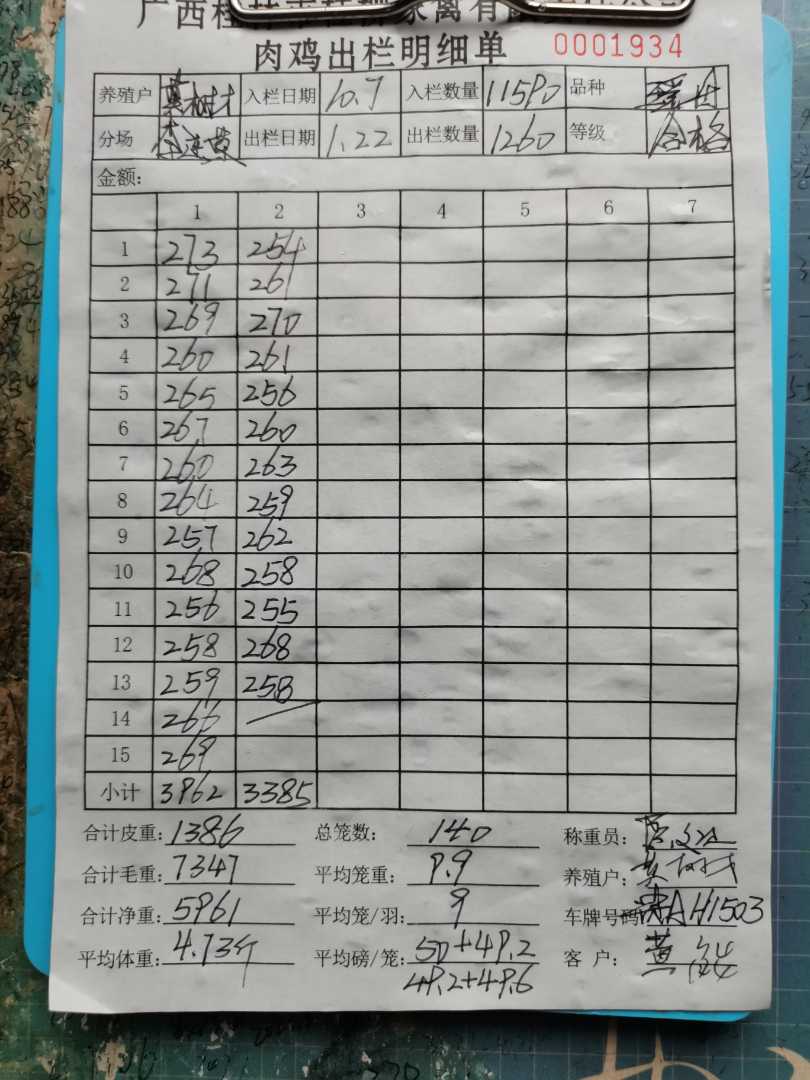 肉鸡出栏明细单 0001934
养殖户 莫树才 入栏日期 10.7 入栏数量 11590 品种
分场 李连英 出栏日期 1.22 出栏数量 1260 等级 合格
金额:
1 2 3 4 5 6 7
1 273 254
2 271 261
3 269 270
4 260 261
5 265 256
6 267 260
7 260 263
8 264 259
9 257 262
10 268 258
11 256 255
12 258 268
13 259 258
14 266
15 269
小计 3962 3385
合计皮重: 1386 总笼数: 140 称重员:
合计毛重: 7347 平均笼重: 9.9 养殖户: 莫树才
合计净重: 5961 平均笼/羽: 9 车牌号码 AH1503
平均体重: 4.73斤 平均磅/笼: 50+49.2 客户: 黄
49.2+49.6